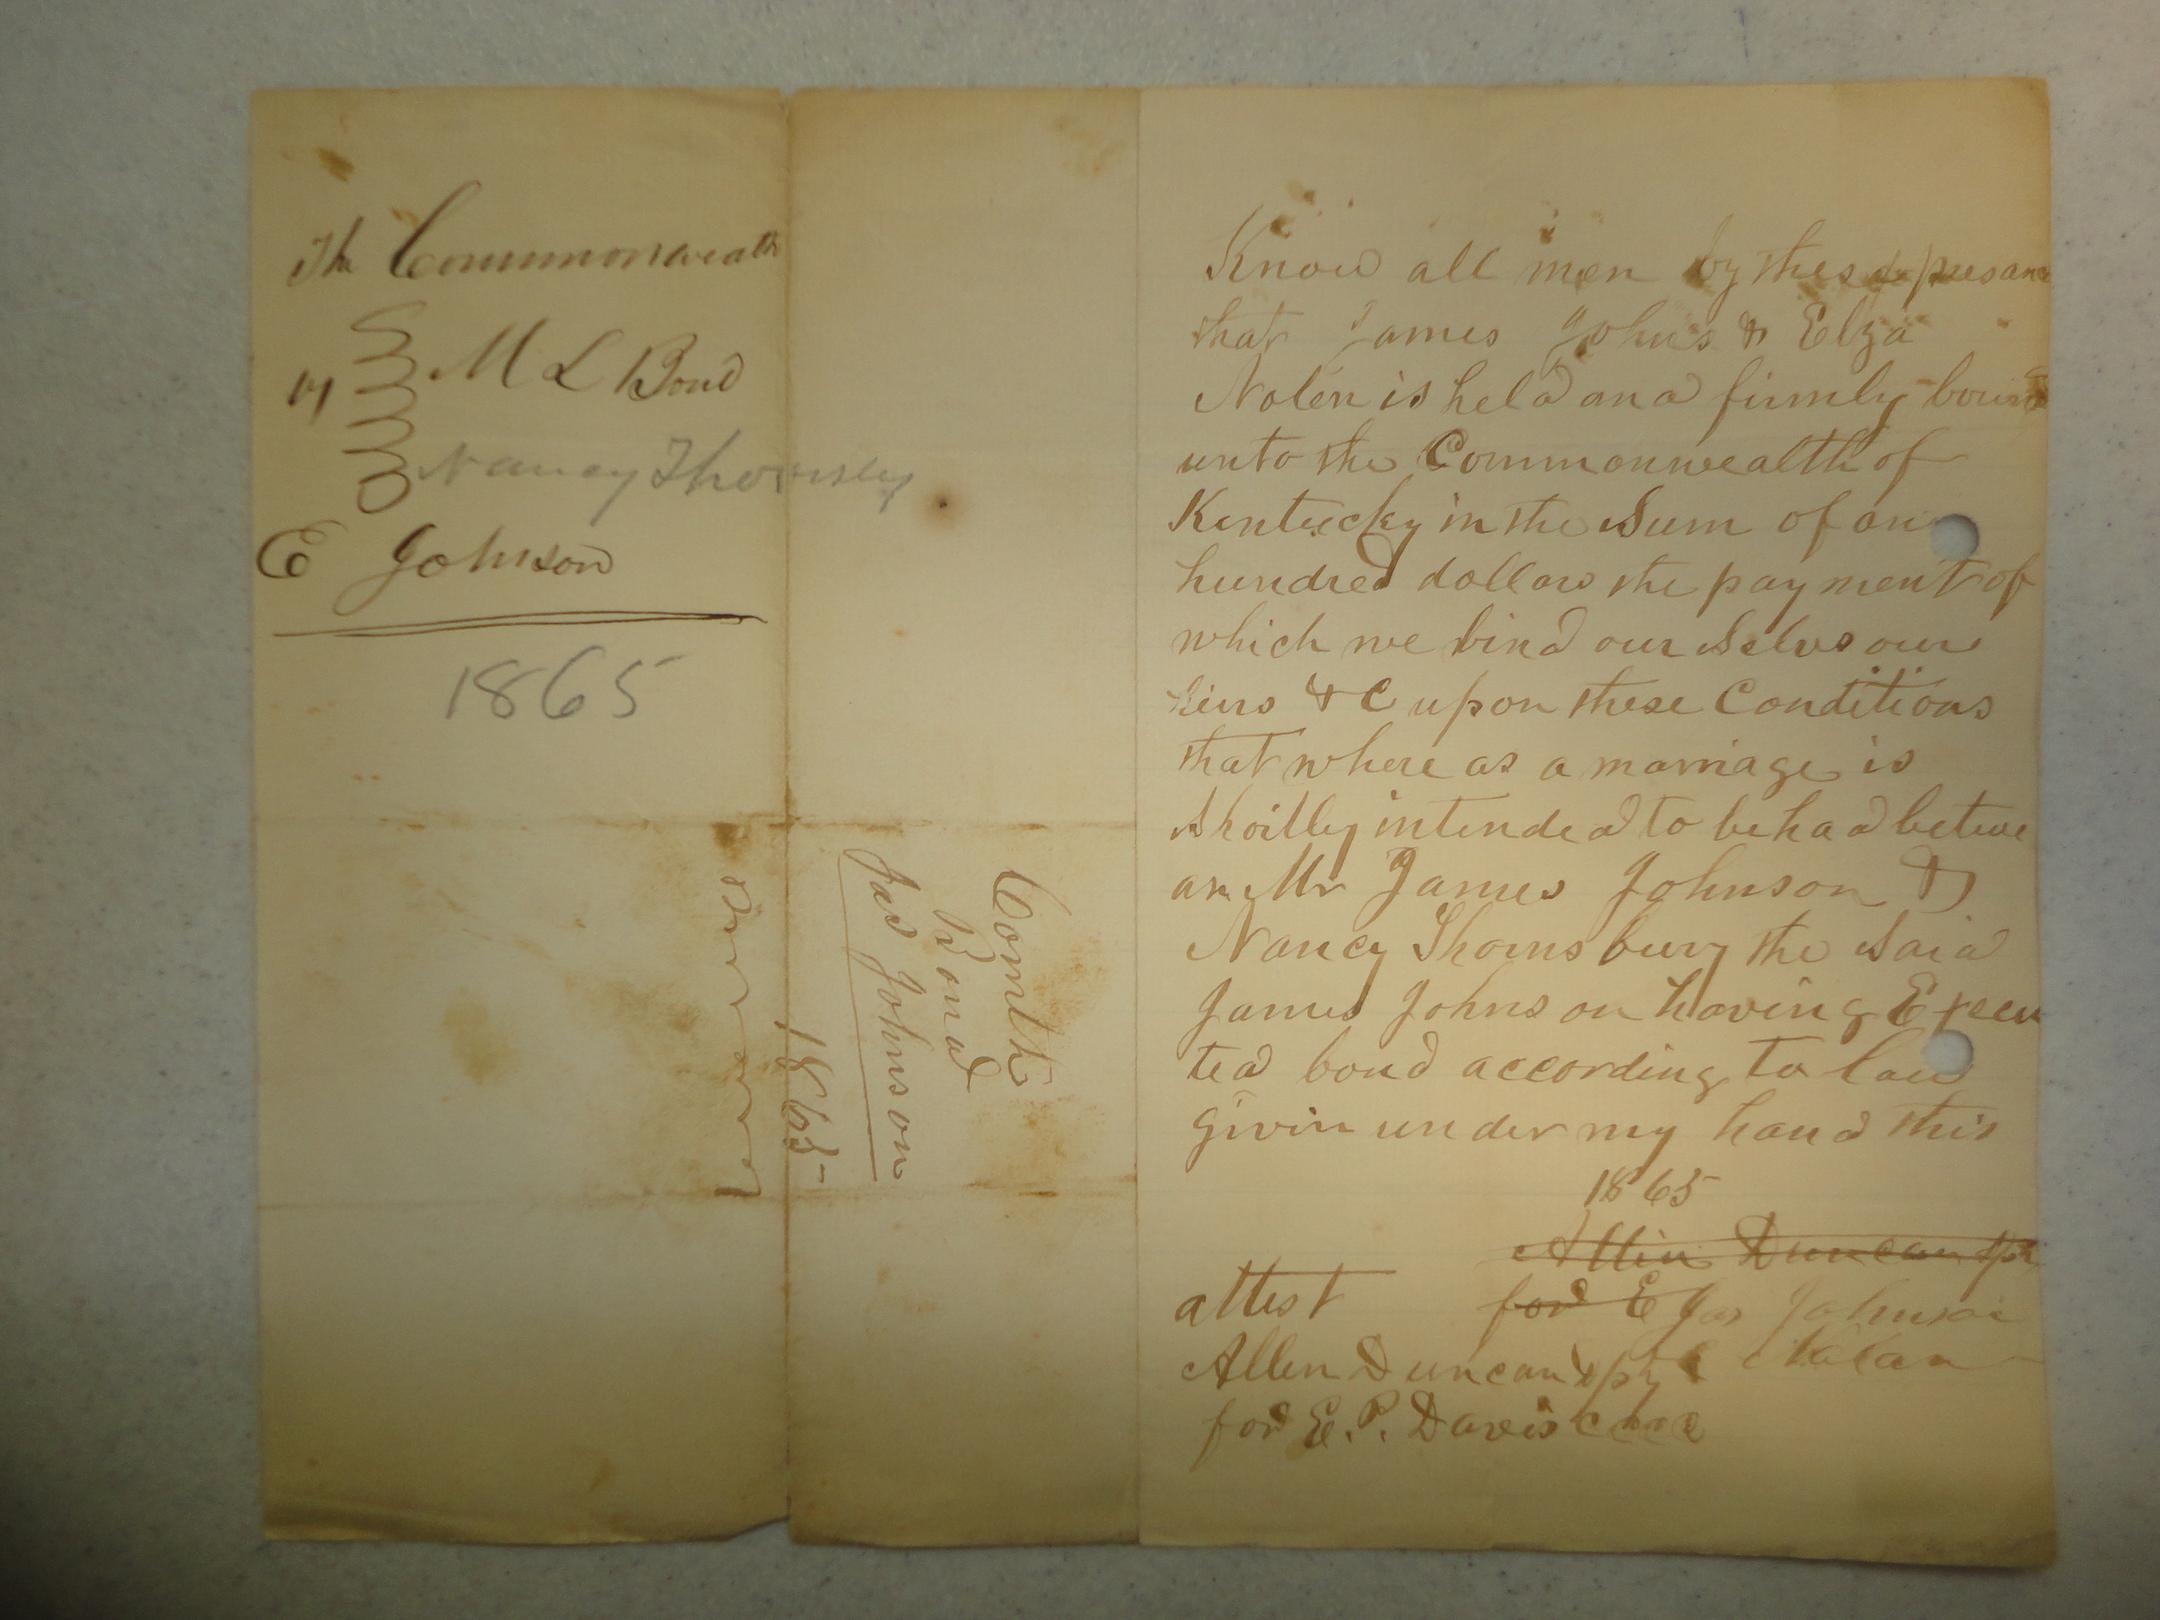 The Commonwealth
vs M L Bond
Nancy Thornsley
E Johnson
1865
Comlth
Bond
Jas Johnson
1865
Know all men by these presance
that James Johns & Elza
Nolen is held and firmly bound
unto the Commonwealth of
Kentucky in the Sum of one
hundred dollars the payment of
which we bind our Selvs our
heirs & C upon these Conditions
that where as a marriage is
Shoitly intended to be had betwe
an Mr James Johnson &
Nancy Thorns bury the Said
James Johnson having Execu
ted bond according to law
givin under my hand this
1865
Allin Duncan dpt
for E Jas Johnson
attest
Allen Duncan dpt E Nolan
for E. P. Davis